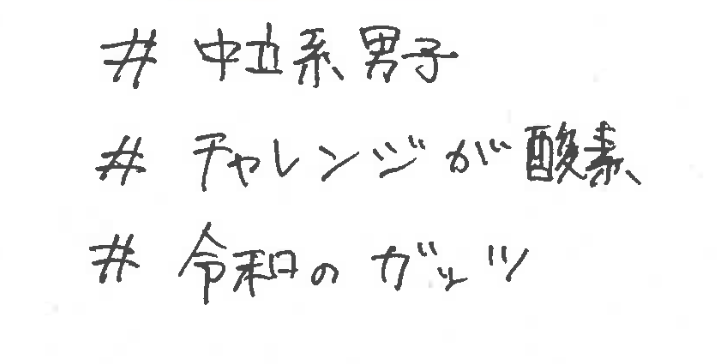 # 中立系男子
# チャレンジが酸素
# 令和のガッツ